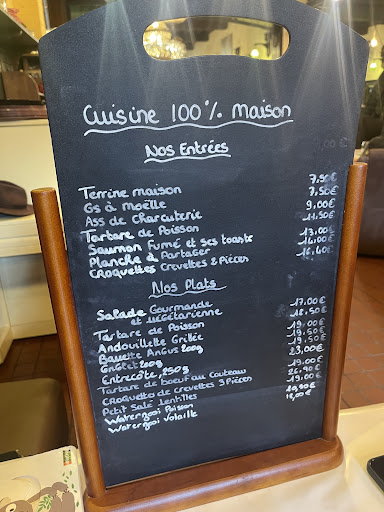 Cuisine 100% maison
Nos Entrées
Terrine maison 7,50€
Os à moëlle 7,50€
Ass de charcuterie 9,00€
Tartare de Poisson 11,50€
Saumon Fumé et ses toasts 13,00€
Planche à Partager 14,00€
Croquettes Crevettes 2 Pièces 16,40€
Nos Plats
Salade Gourmande 17,00€
et végétarienne 18,50€
Tartare de Poisson 19,00€
Andouillette Grillée 19,50€
Bavette Angus 200g 19,50€
Onglet 200g 23,00€
Entrecôte, 250g 19,00€
Tartare de boeuf au Couteau 26,90€
Croquettes de crevettes 3 Pièces 19,00€
Petit Salé Lentilles
Waterzooi Poisson
Waterzooi Volaille